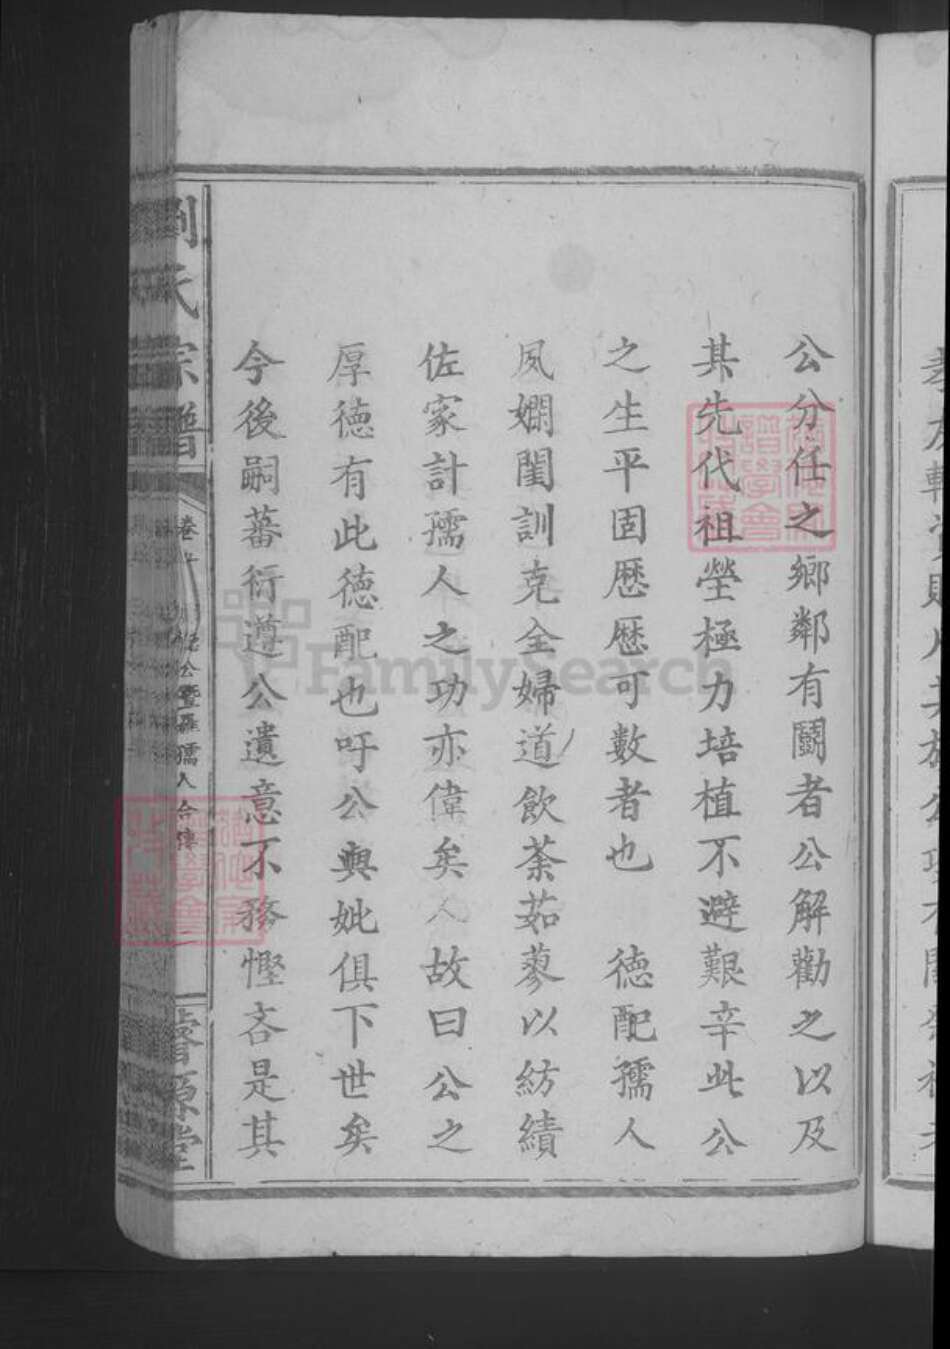 公分任之鄉鄰有鬭者公解勸之以及
其先代祖塋極力培植不避艱辛此公
之生平固歷歷可數者也　德配孺人
夙嫻閨訓克全婦道飲荼茹蓼以紡績
佐家計孺人之功亦偉矣人故曰公之
厚德有此德配也吁公與妣俱下世矣
今後嗣蕃衍遵公遺意不務慳吝是其
劉氏宗譜
公暨羅孺人合傳
二
睿源堂
FamilySearch